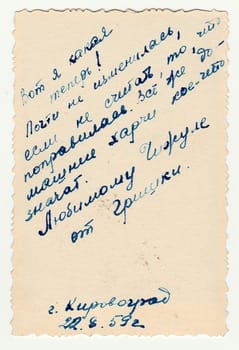 Вот я какая
теперь!
Почти не изменилась,
если не считать, то, что
поправилась. Всё же до-
машние харчи кое-что
значат.
Любимому Жуле
от Гришки.
г. Кировоград
22.8.59 г.